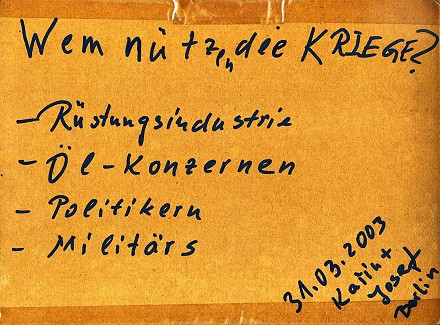 Wem nützen die KRIEGE?
- Rüstungsindustrie
- Öl-Konzernen
- Politikern
- Militärs
31.03.2003
Karin +
Josef
Berlin